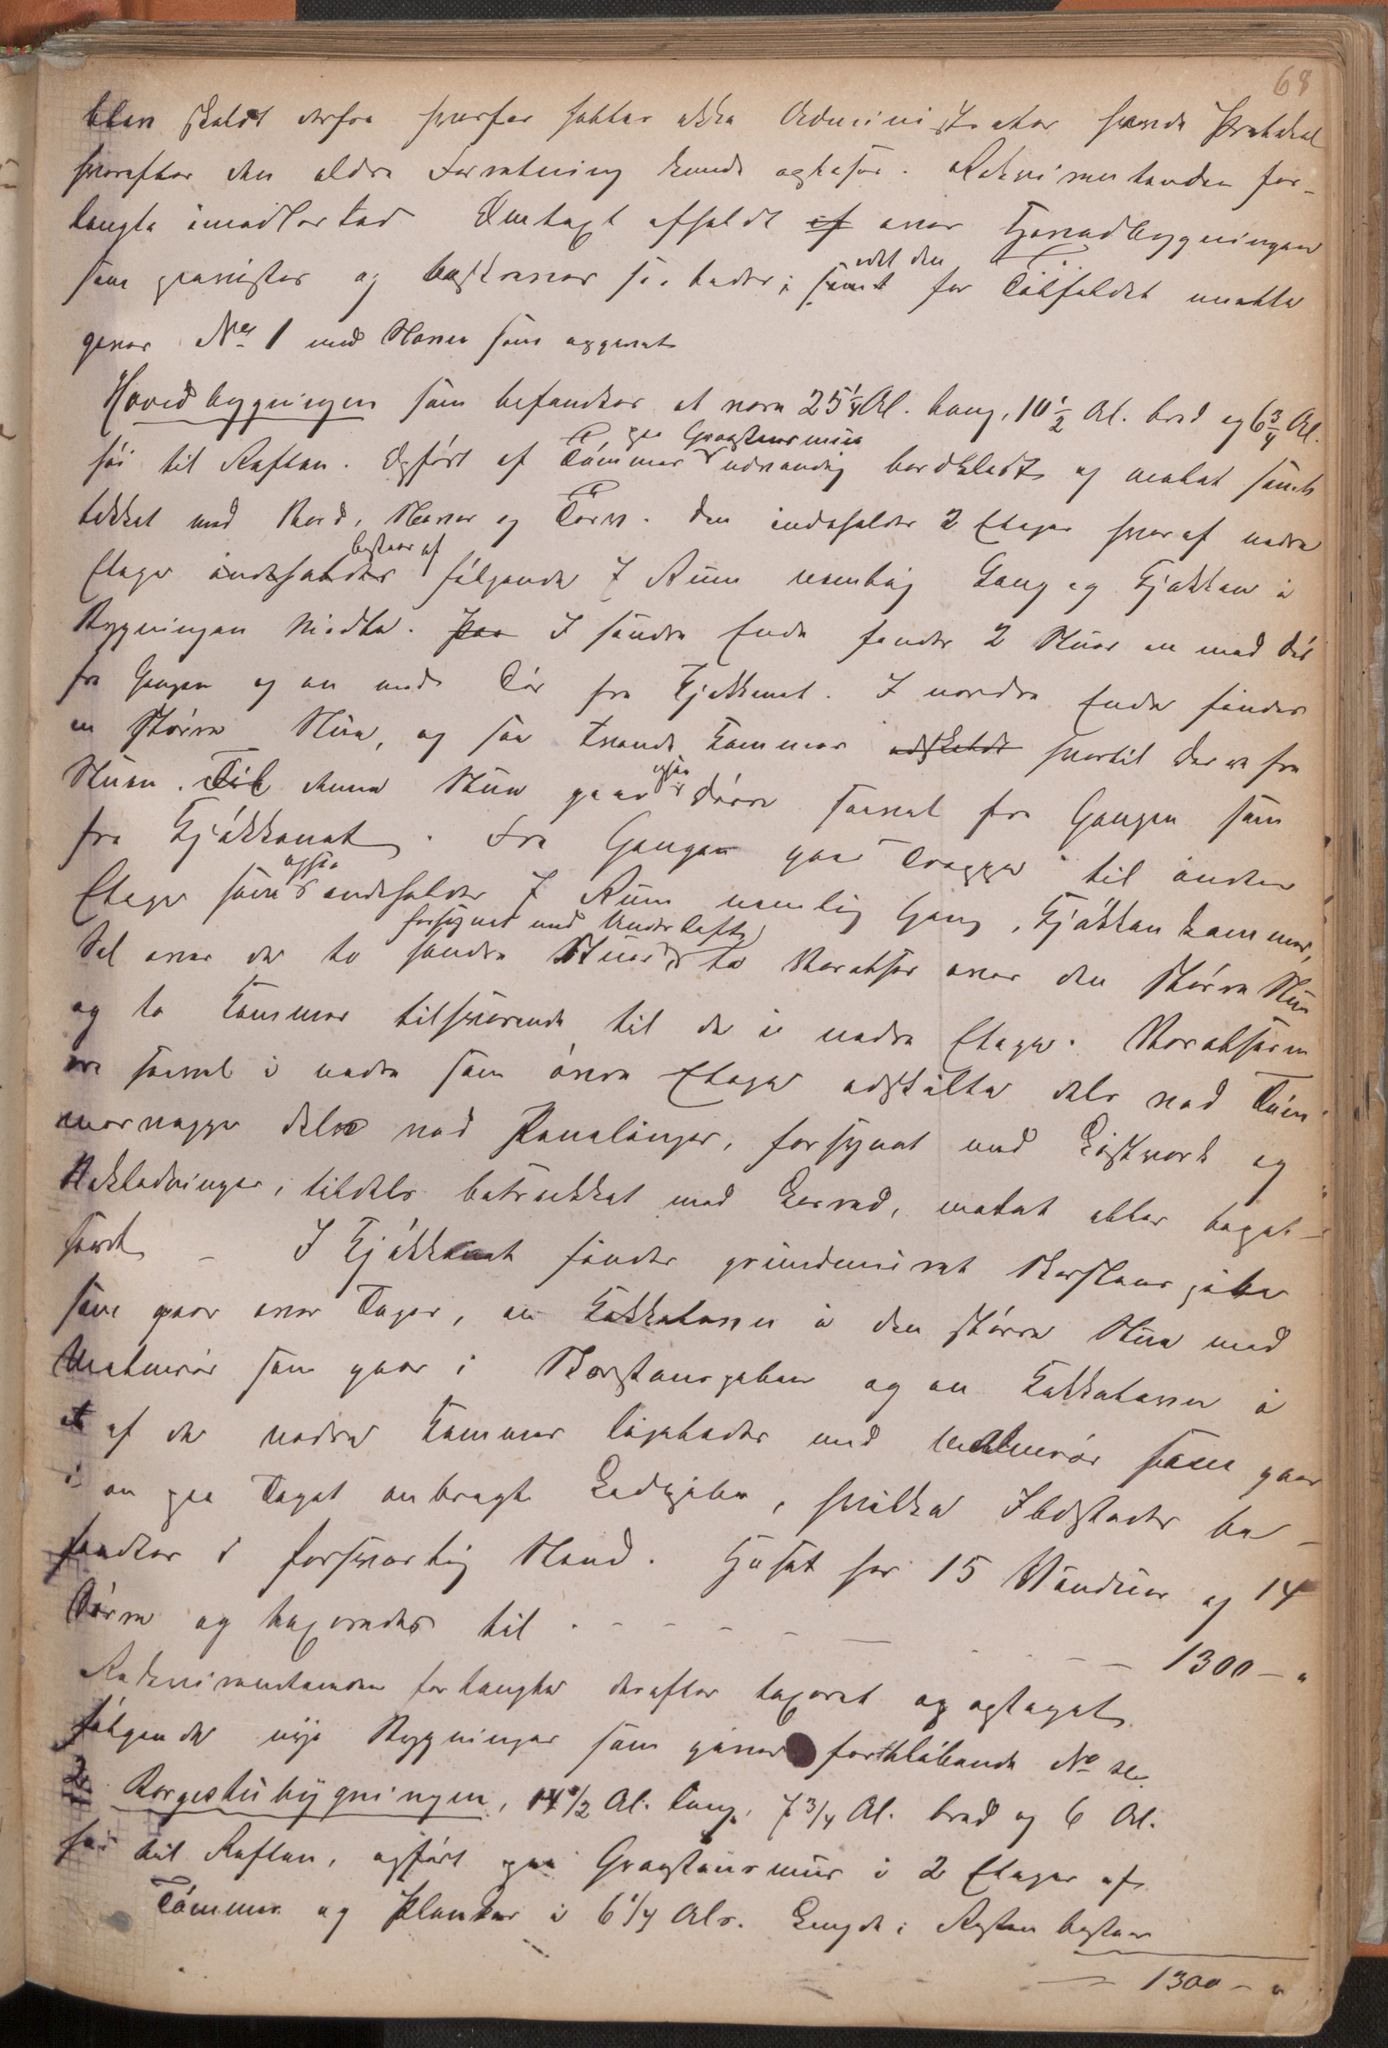 68
blev skeldt derfra hvorfor heller ikke Administrator havde Protokol
hvorefter den ældre Forretning kunde opleses. Rekvirentanden for-
langte imidlertid Omtaxt afholdt af over Hovedbygningen
som grændser og beskrever sig saaledes; samt ved den for Tilfældet
gives No 1 med Navn som opgivet
Hovedbygningen som befandtes at være 25 1/4 Al. lang, 10 1/2 Al. bred og 6 3/4 Al.
høi til Raften. Opført af Tømmer paa Graastensmuur udvendig bordklædt og malet samt
tækket med Bord, Never og Tørv. Den indeholder 2 Etager hvoraf nedre
Etage indeholder bestaar af følgende 7 Rum nemlig Gang og Kjøkken i
Bygningen Midte. Paa I søndre Ende findes 2 Stuer en med Dør
fra Gangen og en med Dør fra Kjøkkenet. I nordre Ende findes
en større Stue, og saa tvende Kammer adskildt hvortil Døre fra
Stuen. Til denne Stue gaar ogsaa Døre saavel fra Gangen som
fra Kjøkkenet. Fra Gangen gaar Trappe til anden
Etage som ogsaa indeholder 7 Rum nemlig Gang, Kjøkkenkammer,
Sal over de to søndre Stuer forsynet med Underloft, to Værelser over den større Stue
og to Kammer tilsvarende til de i nedre Etage. Værelserne
ere saavel i nedre som øvre Etage adskilte dels ved Tøm-
mervægge dels ved Panelinger, forsynet med Listverk og
Bekledninger, tildels betrukket med Lerred, malet eller tapet-
seret – I Kjøkkenet findes grundmuret Skorstenspibe
som gaar over Taget, en Kakkelovn i den større Stue med
Malmrør som gaar i Skorstenspiben og en Kakkelovn i
et af de nedre Kammer ligeledes med Malmrør som gaar
i en paa Taget anbragt Ledpibe, hvilke Ildsteder be-
fandtes i forsvarlig Stand. Huset har 15 Vinduer og 14
Døre og taxeredes til - - - - - - - - 1300 - "
Rekvirentanden forlangte derefter taxeret og optaget
følgende nye Bygninger som gives fortløbende No se.
2. Borgestubygningen, 14 1/2 Al. lang, 7 3/4 Al. bred og 6 Al.
høi til Raften, opført paa Graastensmuur i 2 Etager af
Tømmer og Planker i 6 1/4 Als. Lengde; Resten bestaar
1300 - "